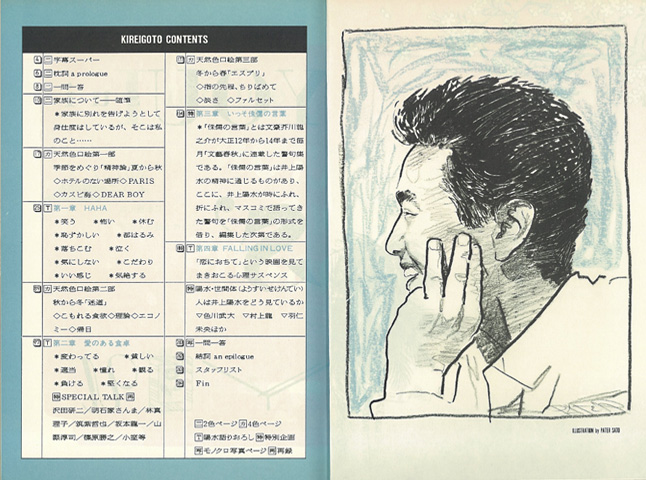 KIREIGOTO CONTENTS
字幕スーパー
枕詞 a prologue
一問一答
家族について――随筆
＊家族に別れを告げようとして
身仕度はしているが、そこは私
のこと……
天然色口絵第一部
季節をめぐり「精神論」夏から秋
◇ホテルのない場所◇PARIS
◇カスピ海◇DEAR BOY
第一章 HAHA
＊笑う ＊怖い ＊休む
＊恥ずかしい ＊部はるみ
＊落ちこむ ＊泣く
＊気にしない ＊こだわり
＊いい感じ ＊気絶する
天然色口絵第二部
秋から冬「迷道」
◇こもれる食欲◇理論◇エコノ
ミー◇帰日
第二章 愛のある食卓
＊変わってる ＊貧しい
＊適当 ＊憧れ ＊観る
＊負ける ＊堅くなる
SPECIAL TALK
沢田研二／明石家さんま／林真
理子／筑紫哲也／坂本龍一／山
県淳司／篠原勝之／小室等
天然色口絵第三部
冬から春「エスプリ」
◇指の先程、ちりばめて
◇淡さ ◇ファルセット
第三章 いっそ侏儒の言葉
＊「侏儒の言葉」とは文豪芥川龍
之介が大正12年から14年まで毎
月「文藝春秋」に連載した警句集
である。「侏儒の言葉」は井上陽
水の精神に通じるものがあり、
ここに、井上陽水が時にふれ、
折にふれ、マスコミで語ってき
た警句を「侏儒の言葉」の形式を
借り、編集した次第である。
第四章 FALLING IN LOVE
「恋におちて」という映画を見て
まきおこる心理サスペンス
陽水・世間体(よりすいせけんてい)
人は井上陽水をどう見ているか
▽色川武大 ▽村上龍 ▽羽仁
未央ほか
一問一答
結詞 an epilogue
スタッフリスト
Fin
二2色ページ カ4色ページ
T陽水語りおろし 特特別企画
写モノクロ写真ページ 再再録
ILLUSTRATION by PATER SATO